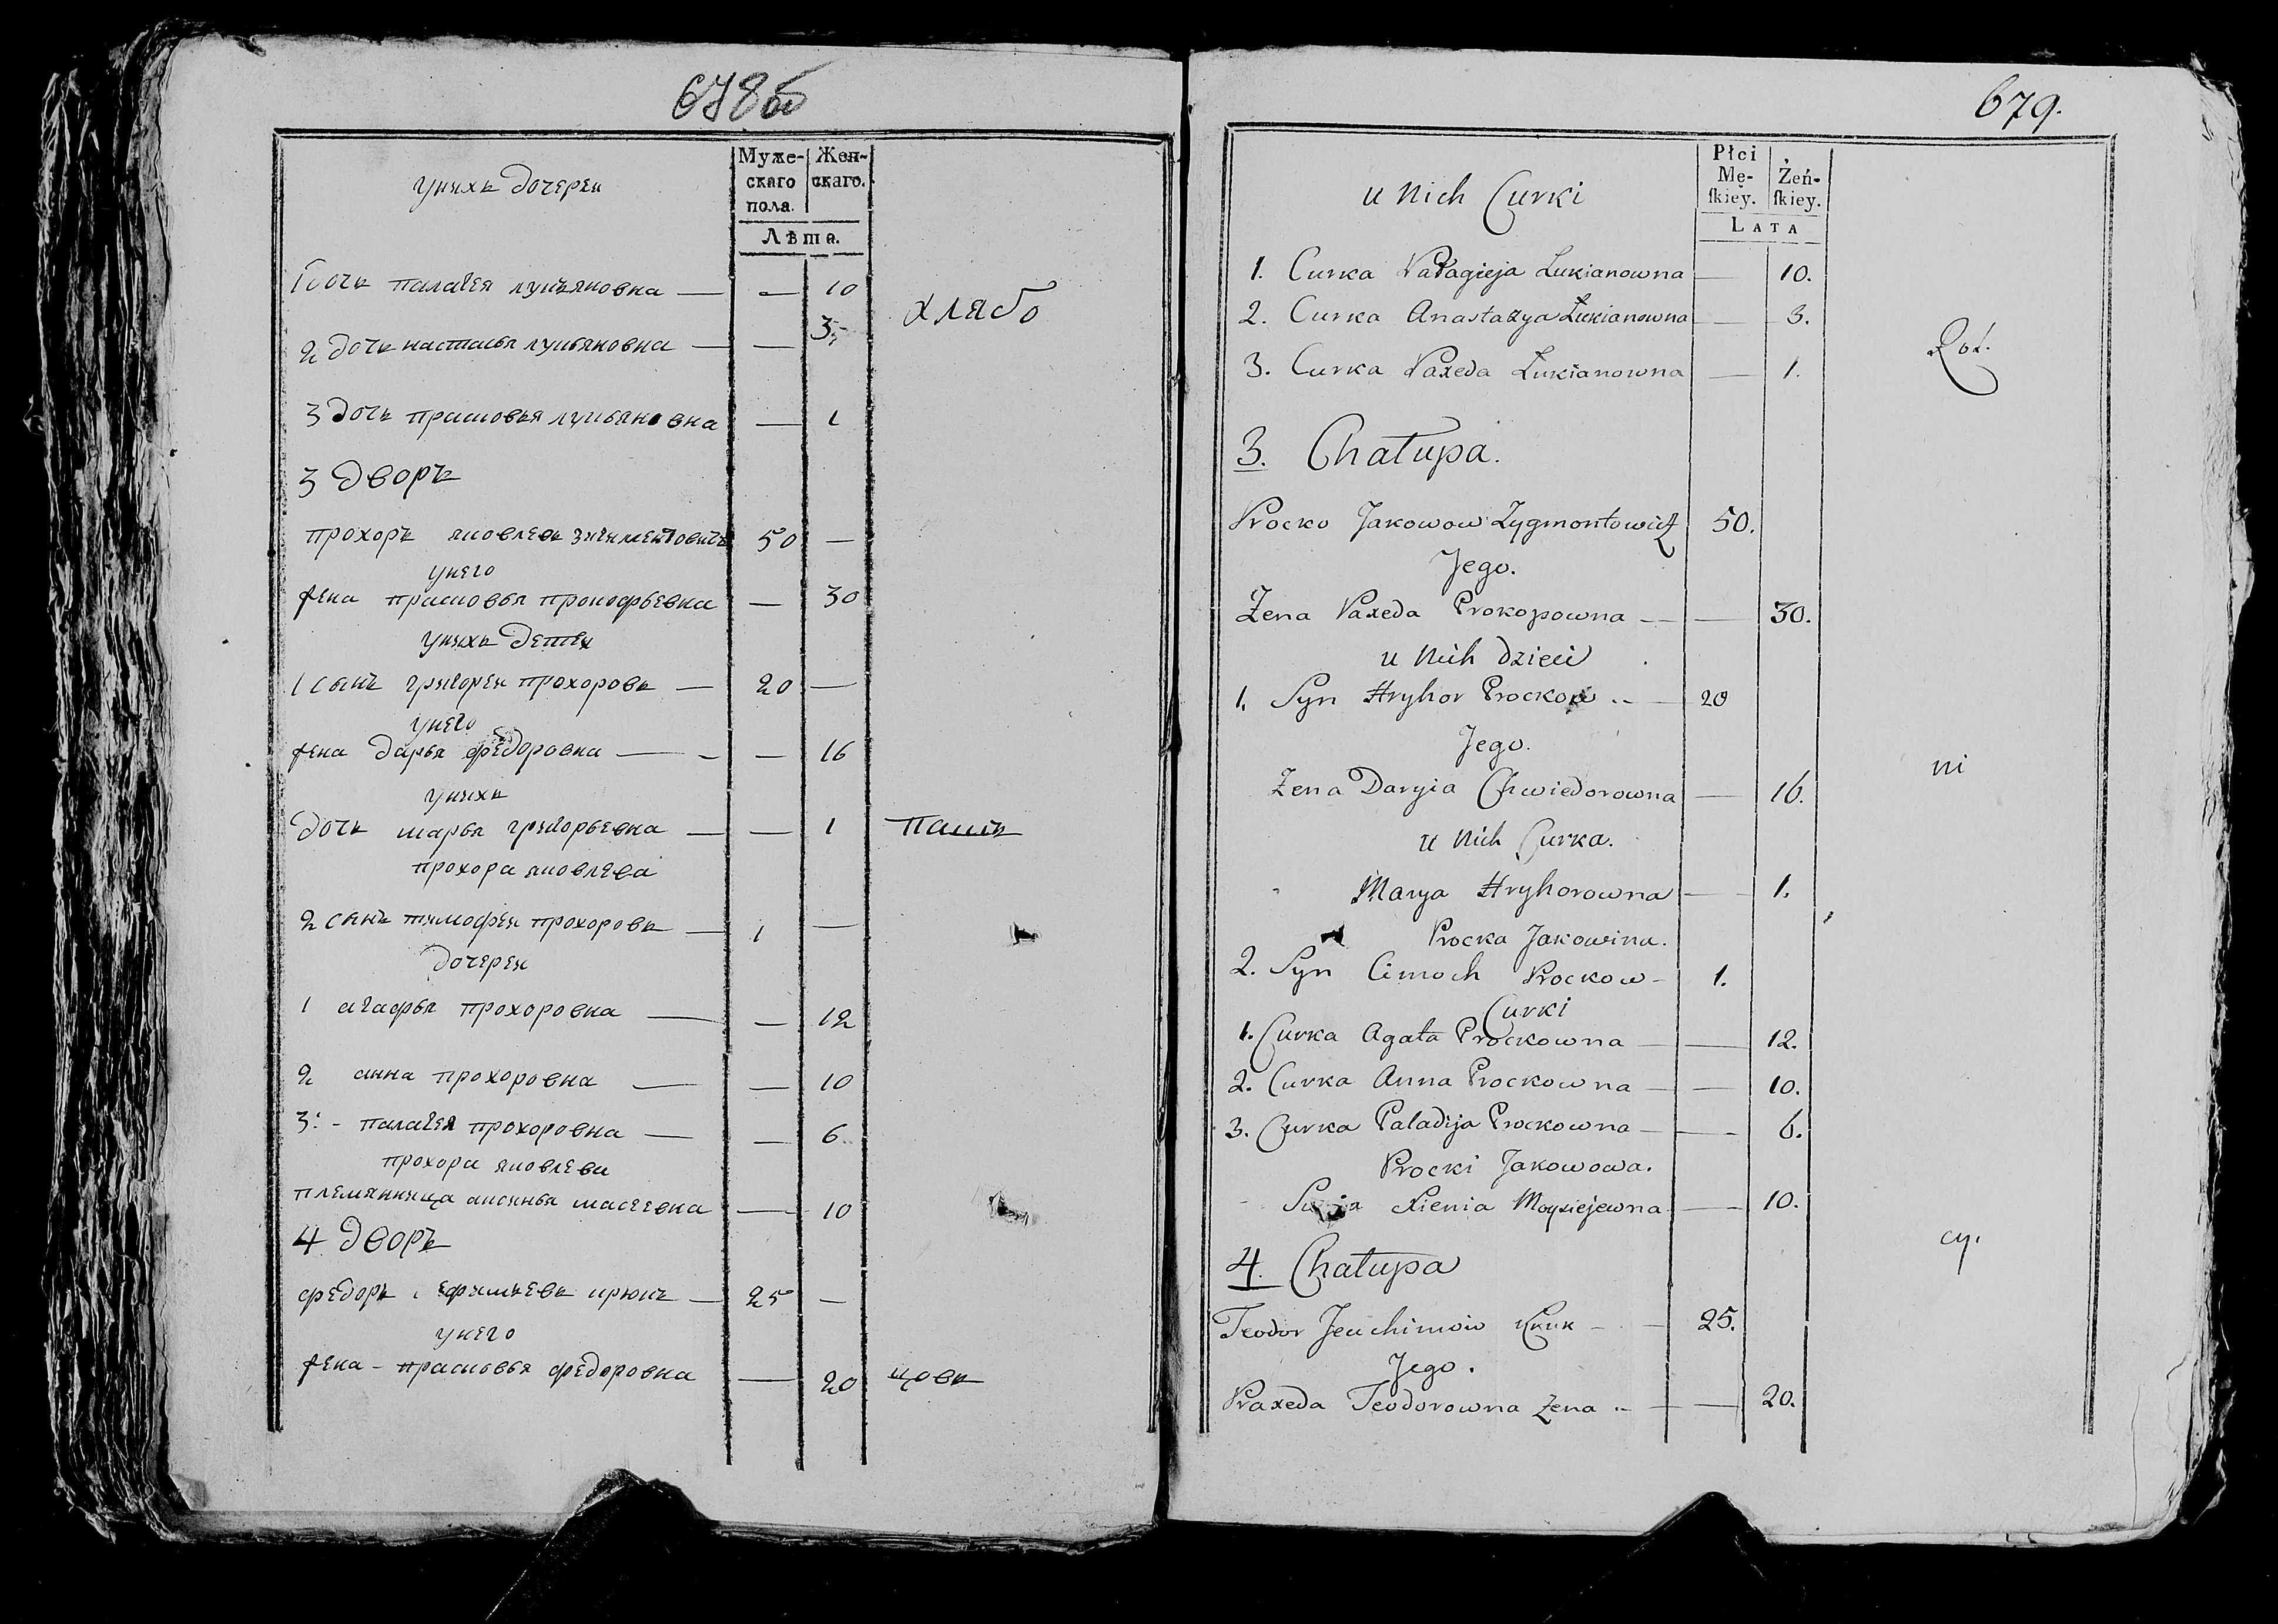 678об
Муже- Жен-
скаго скаго.
пола.
Лѣта.
унихъ дочереи
1 дочь палагея лукъяновна — — 10
хлябо
2 дочь настасья лукьяновна — — 3
3 дочь прасковья лукьяновна — 1
3 дворъ
прохоръ яковлевъ зигментовичъ 50 —
унего
жена прасковья прокофьевна — 30
унихъ детеи
1 сынъ григореи прохоровъ — 20 —
унего
жена дарья федоровна — — 16
унихъ
дочь марья григорьевна — — 1 пашъ
прохора яковлева
2 сынъ тимофеи прохоровъ — 1 —
дочереи
1 агафья прохоровна — — 12
2 анна прохоровна — — 10
3: - палагея прохоровна — — 6
прохора яковлева
племянница аксинья масеевна — 10
4 дворъ
федоръ ефимьевъ крюкъ — 25 —
унего
жена - прасковья федоровна — 20 цовъ
679.
Płci
Mę- Żeń-
skiey. skiey.
LATA
u Nich Curki
1. Curka Pałagieja Łukianowna — 10.
2. Curka Anastazya Łukianowna — 3.
3. Curka Paxeda Łukianowna — 1.
3. Chałupa.
Procko Jakowow Zygmontowicz 50.
Jego.
Żena Paxeda Prokopowna — — 30.
u Nich dzieci
1. Syn Hryhor Prockow — 20
Jego.
ni
Żena Daryia Chwiedorowna — 16.
u Nich Curka.
Marya Hryhorowna — 1.
Procka Jakowina.
2. Syn Cimoch Prockow - 1.
Curki
1. Curka Agata Prockowna — — 12.
2. Curka Anna Prockowna — — 10.
3. Curka Paladija Prockowna — — 6.
Procki Jakowowa.
Xienia Moysiejewna — 10.
cy.
4. Chałupa
Teodor Jeuchimow Kruk — 25.
Jego.
Praxeda Teodorowna Żena — — 20.